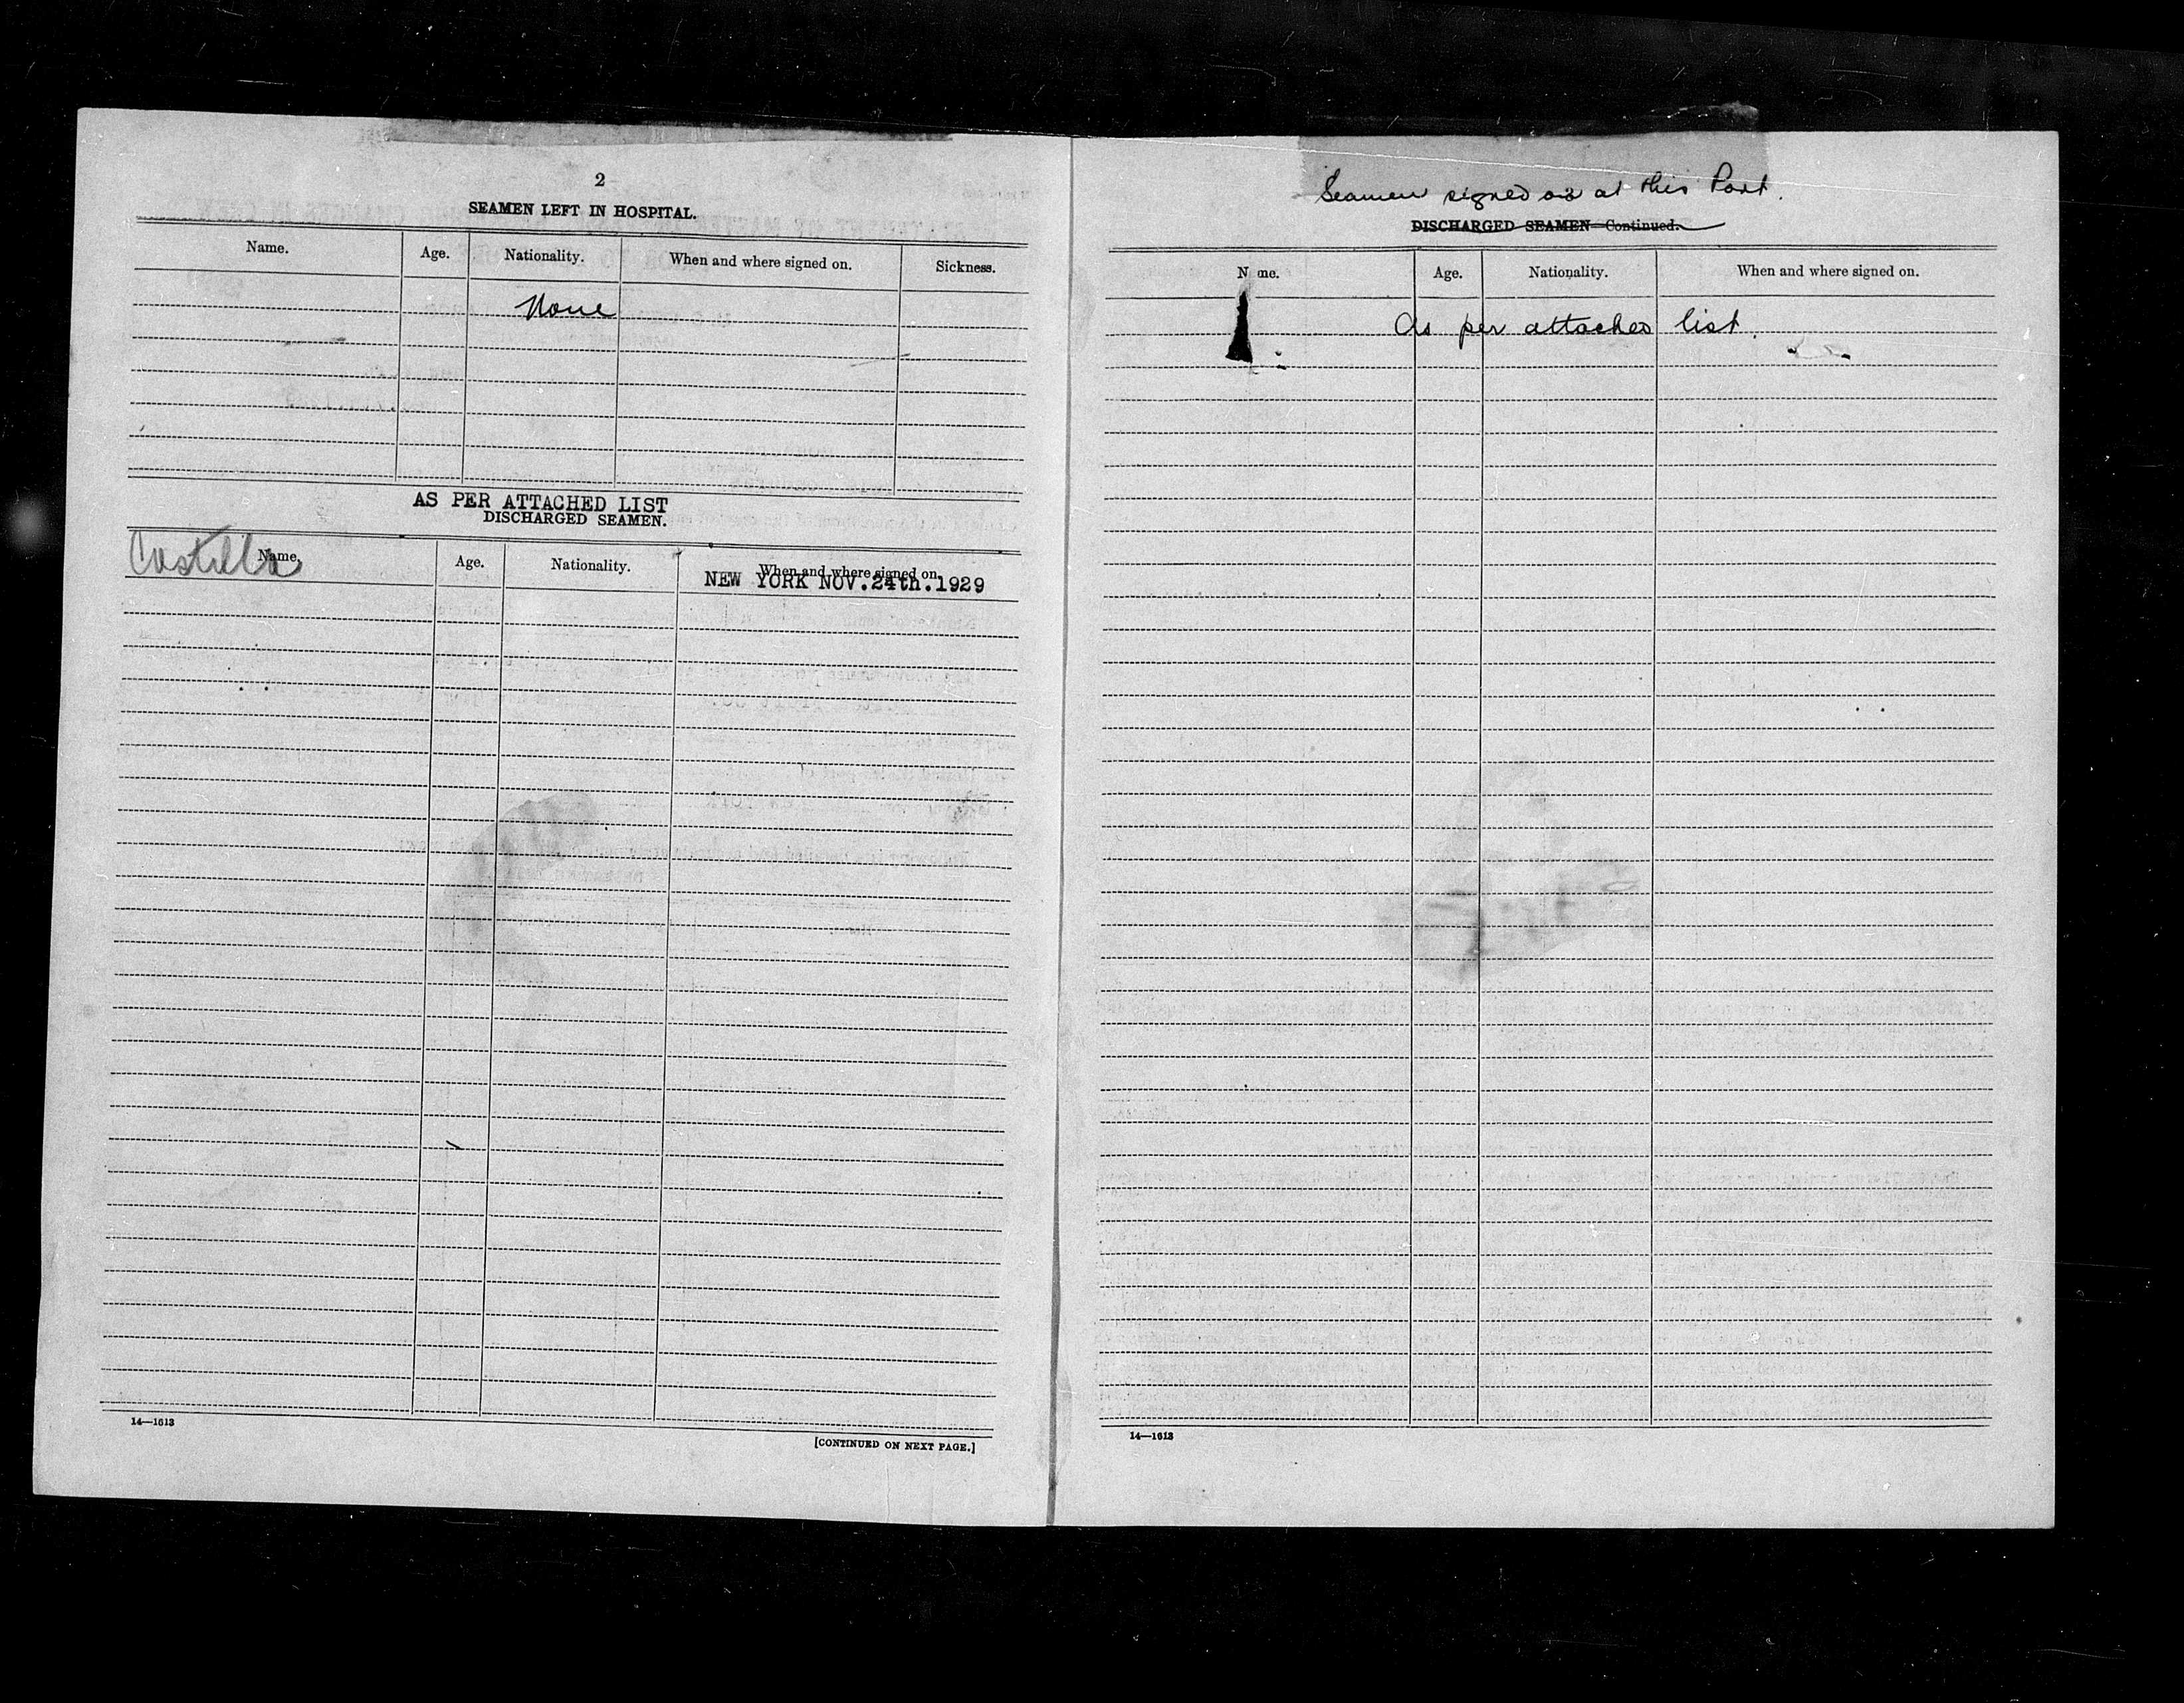 2
SEAMEN LEFT IN HOSPITAL.
Name. Age. Nationality. When and where signed on. Sickness.
None
AS PER ATTACHED LIST
DISCHARGED SEAMEN.
Name. Age. Nationality. When and where signed on.
NEW YORK NOV.24th.1929
14—1613
[CONTINUED ON NEXT PAGE.]
Seamen signed on at this Port.
DISCHARGED SEAMEN—Continued.
N me. Age. Nationality. When and where signed on.
As per attached list.
14—1613